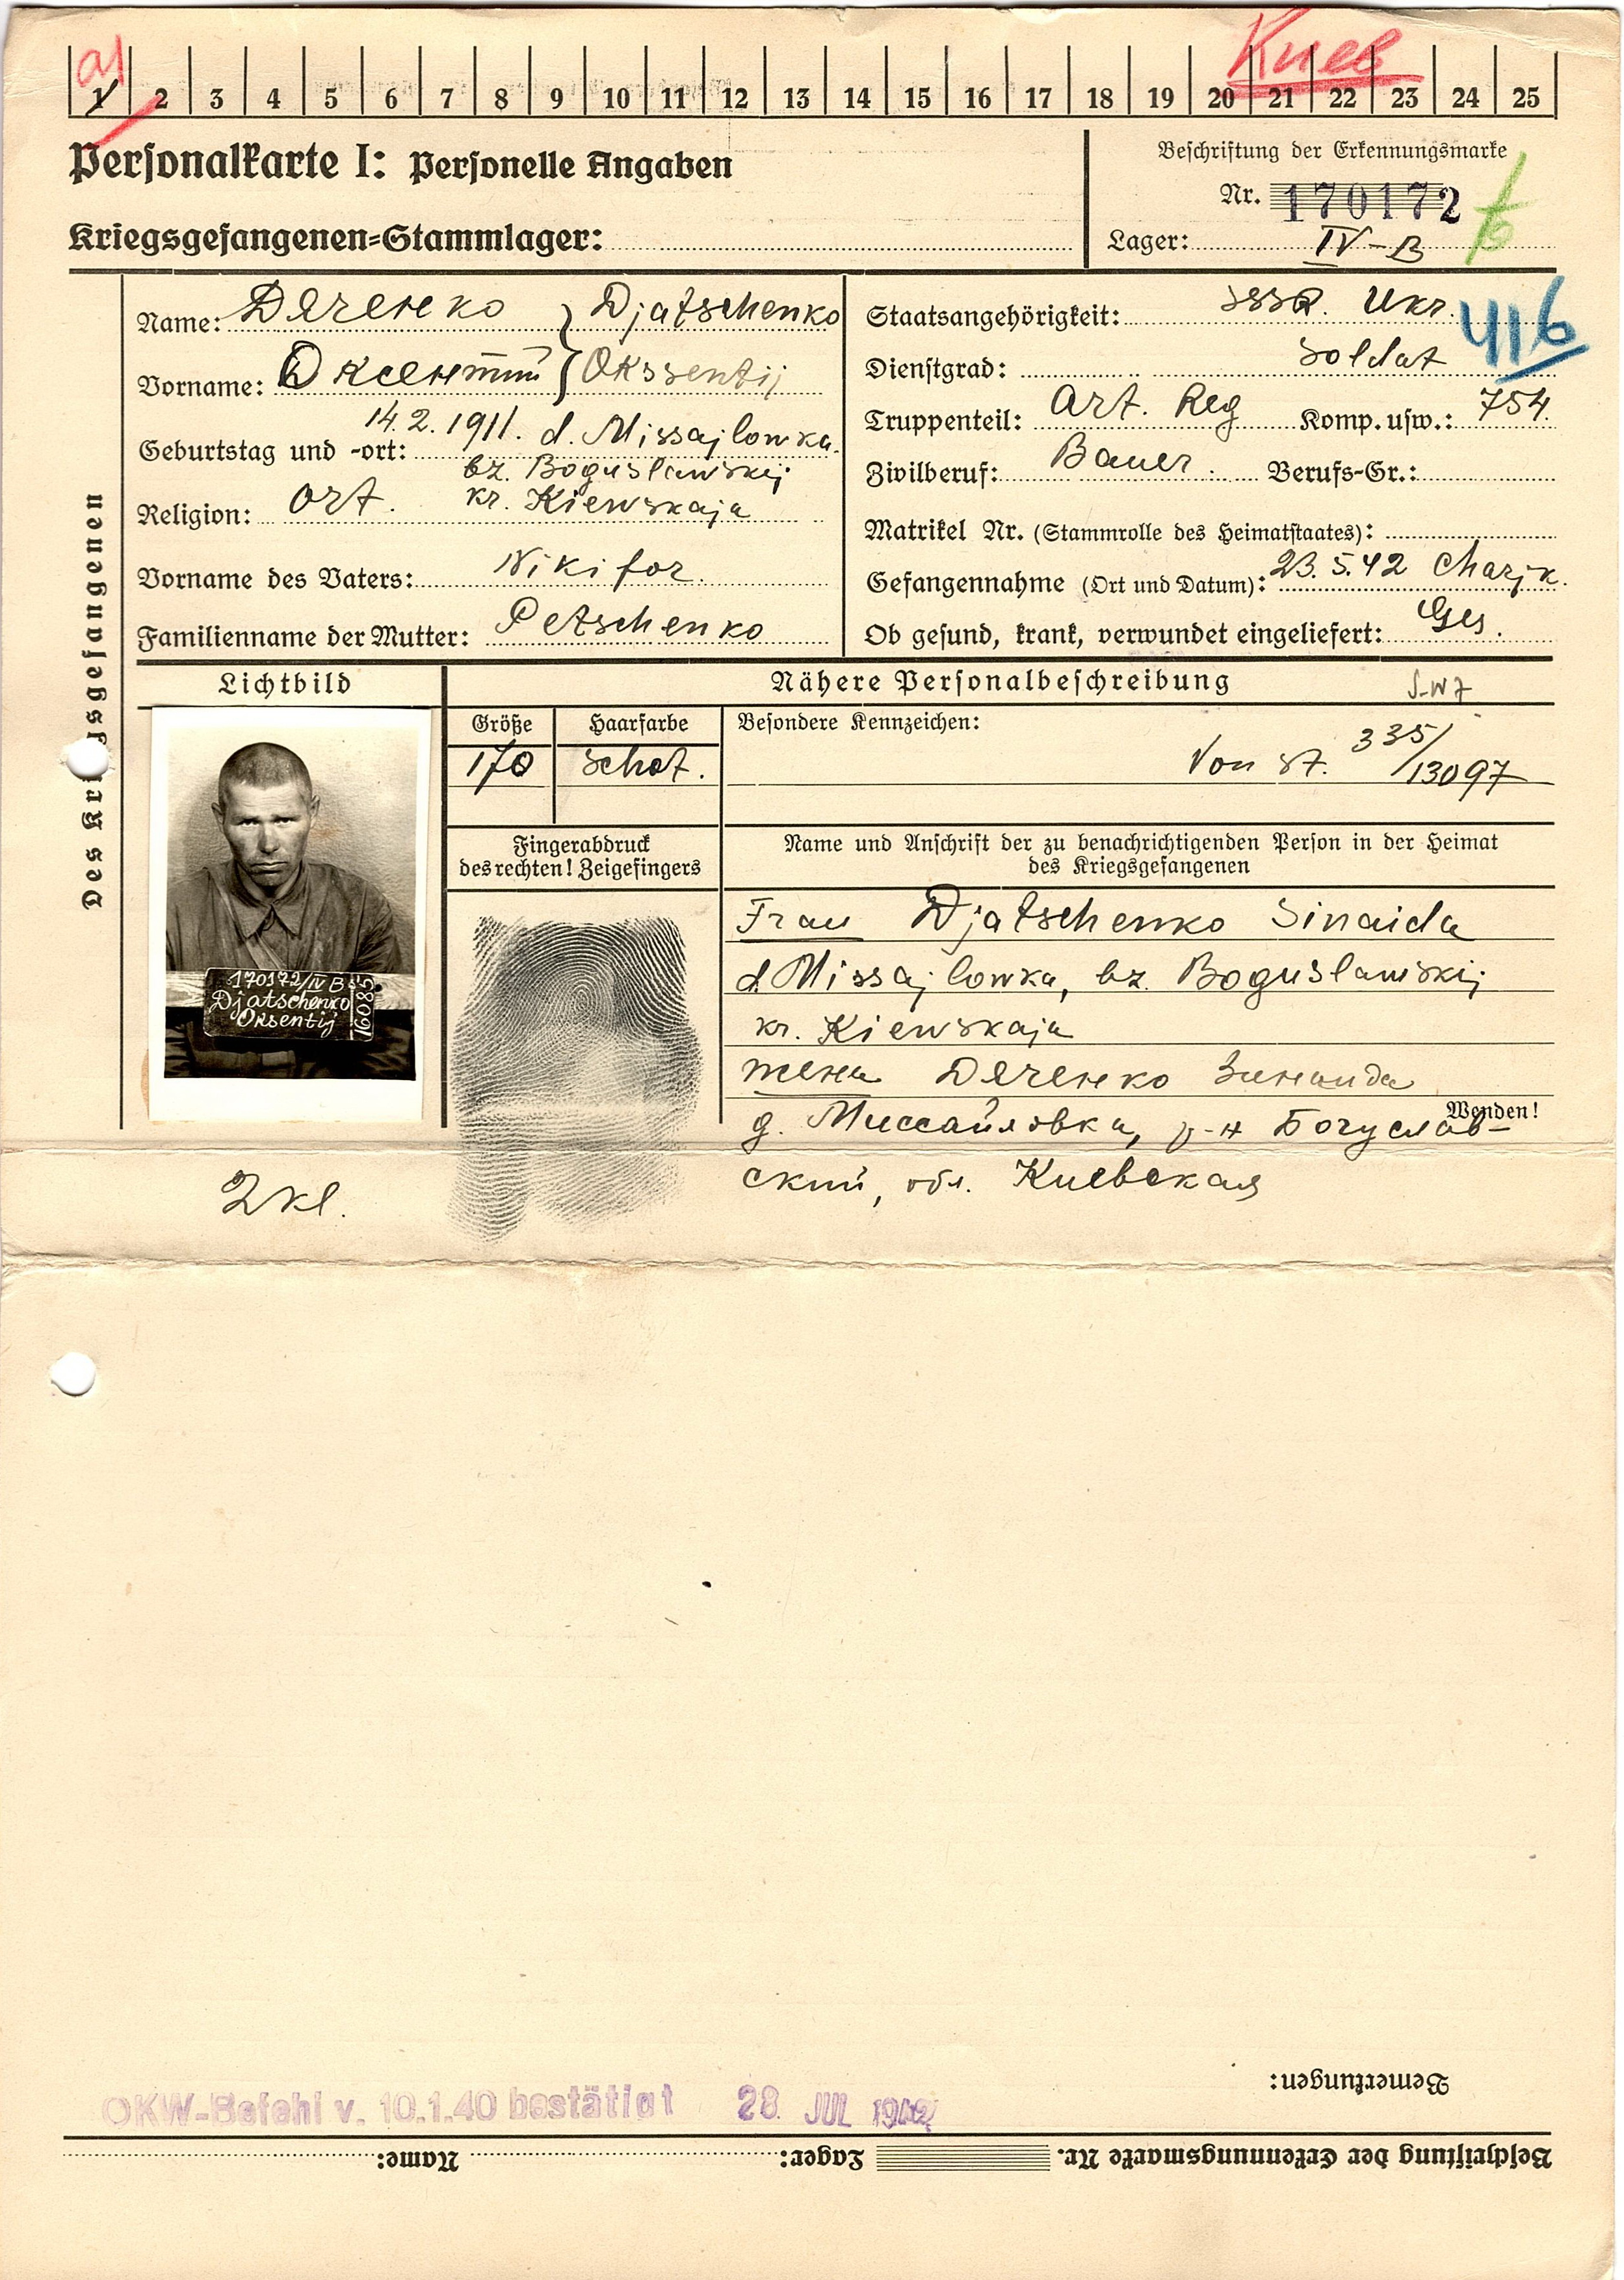 Киев
a1
1 2 3 4 5 6 7 8 9 10 11 12 13 14 15 16 17 18 19 20 21 22 23 24 25
Personalkarte I: Personelle Angaben
Beschriftung der Erkennungsmarke
Nr. 170172
Kriegsgefangenen-Stammlager:
Lager: IV-B
Des Kri sgefangenen
Name: Дяченко } Djatschenko
Vorname: Оксентий } Okssentij
Geburtstag und -ort: 14.2.1911. d. Missajlowka.
bz. Boguslawskij
Religion: Ort. kr. Kiewskaja
Vorname des Vaters: Nikifor.
Familienname der Mutter: Petschenko
Staatsangehörigkeit: SSSR. Ukr.
416
Dienstgrad: Soldat
Truppenteil: Art. Reg Komp. usw.: 754.
Zivilberuf: Bauer. Berufs-Gr.:
Matrikel Nr. (Stammrolle des Heimatstaates):
Gefangennahme (Ort und Datum): 23.5.42 Charjk.
Ob gesund, krank, verwundet eingeliefert: Ges.
Lichtbild
Nähere Personalbeschreibung
Größe
Haarfarbe
Besondere Kennzeichen:
170
Von St. 335/13097
Fingerabdruck
des rechten! Zeigefingers
Name und Anschrift der zu benachrichtigenden Person in der Heimat
des Kriegsgefangenen
170172/IV B
Djatschenko
Oksentij
16085
Frau Djatschenko Sinaida
d. Missajlowka, bz. Boguslawskij
kr. Kiewskaja
жена Дяченко Зинаида
Wenden!
д. Миссайловка, р-н Богуслав-
ский, обл. Киевская
2kl.
Bemerkungen:
OKW-Befehl v. 10.1.40 bestätigt 28. JUL 1942
Beschriftung der Erkennungsmarke Nr. Lager: Name: